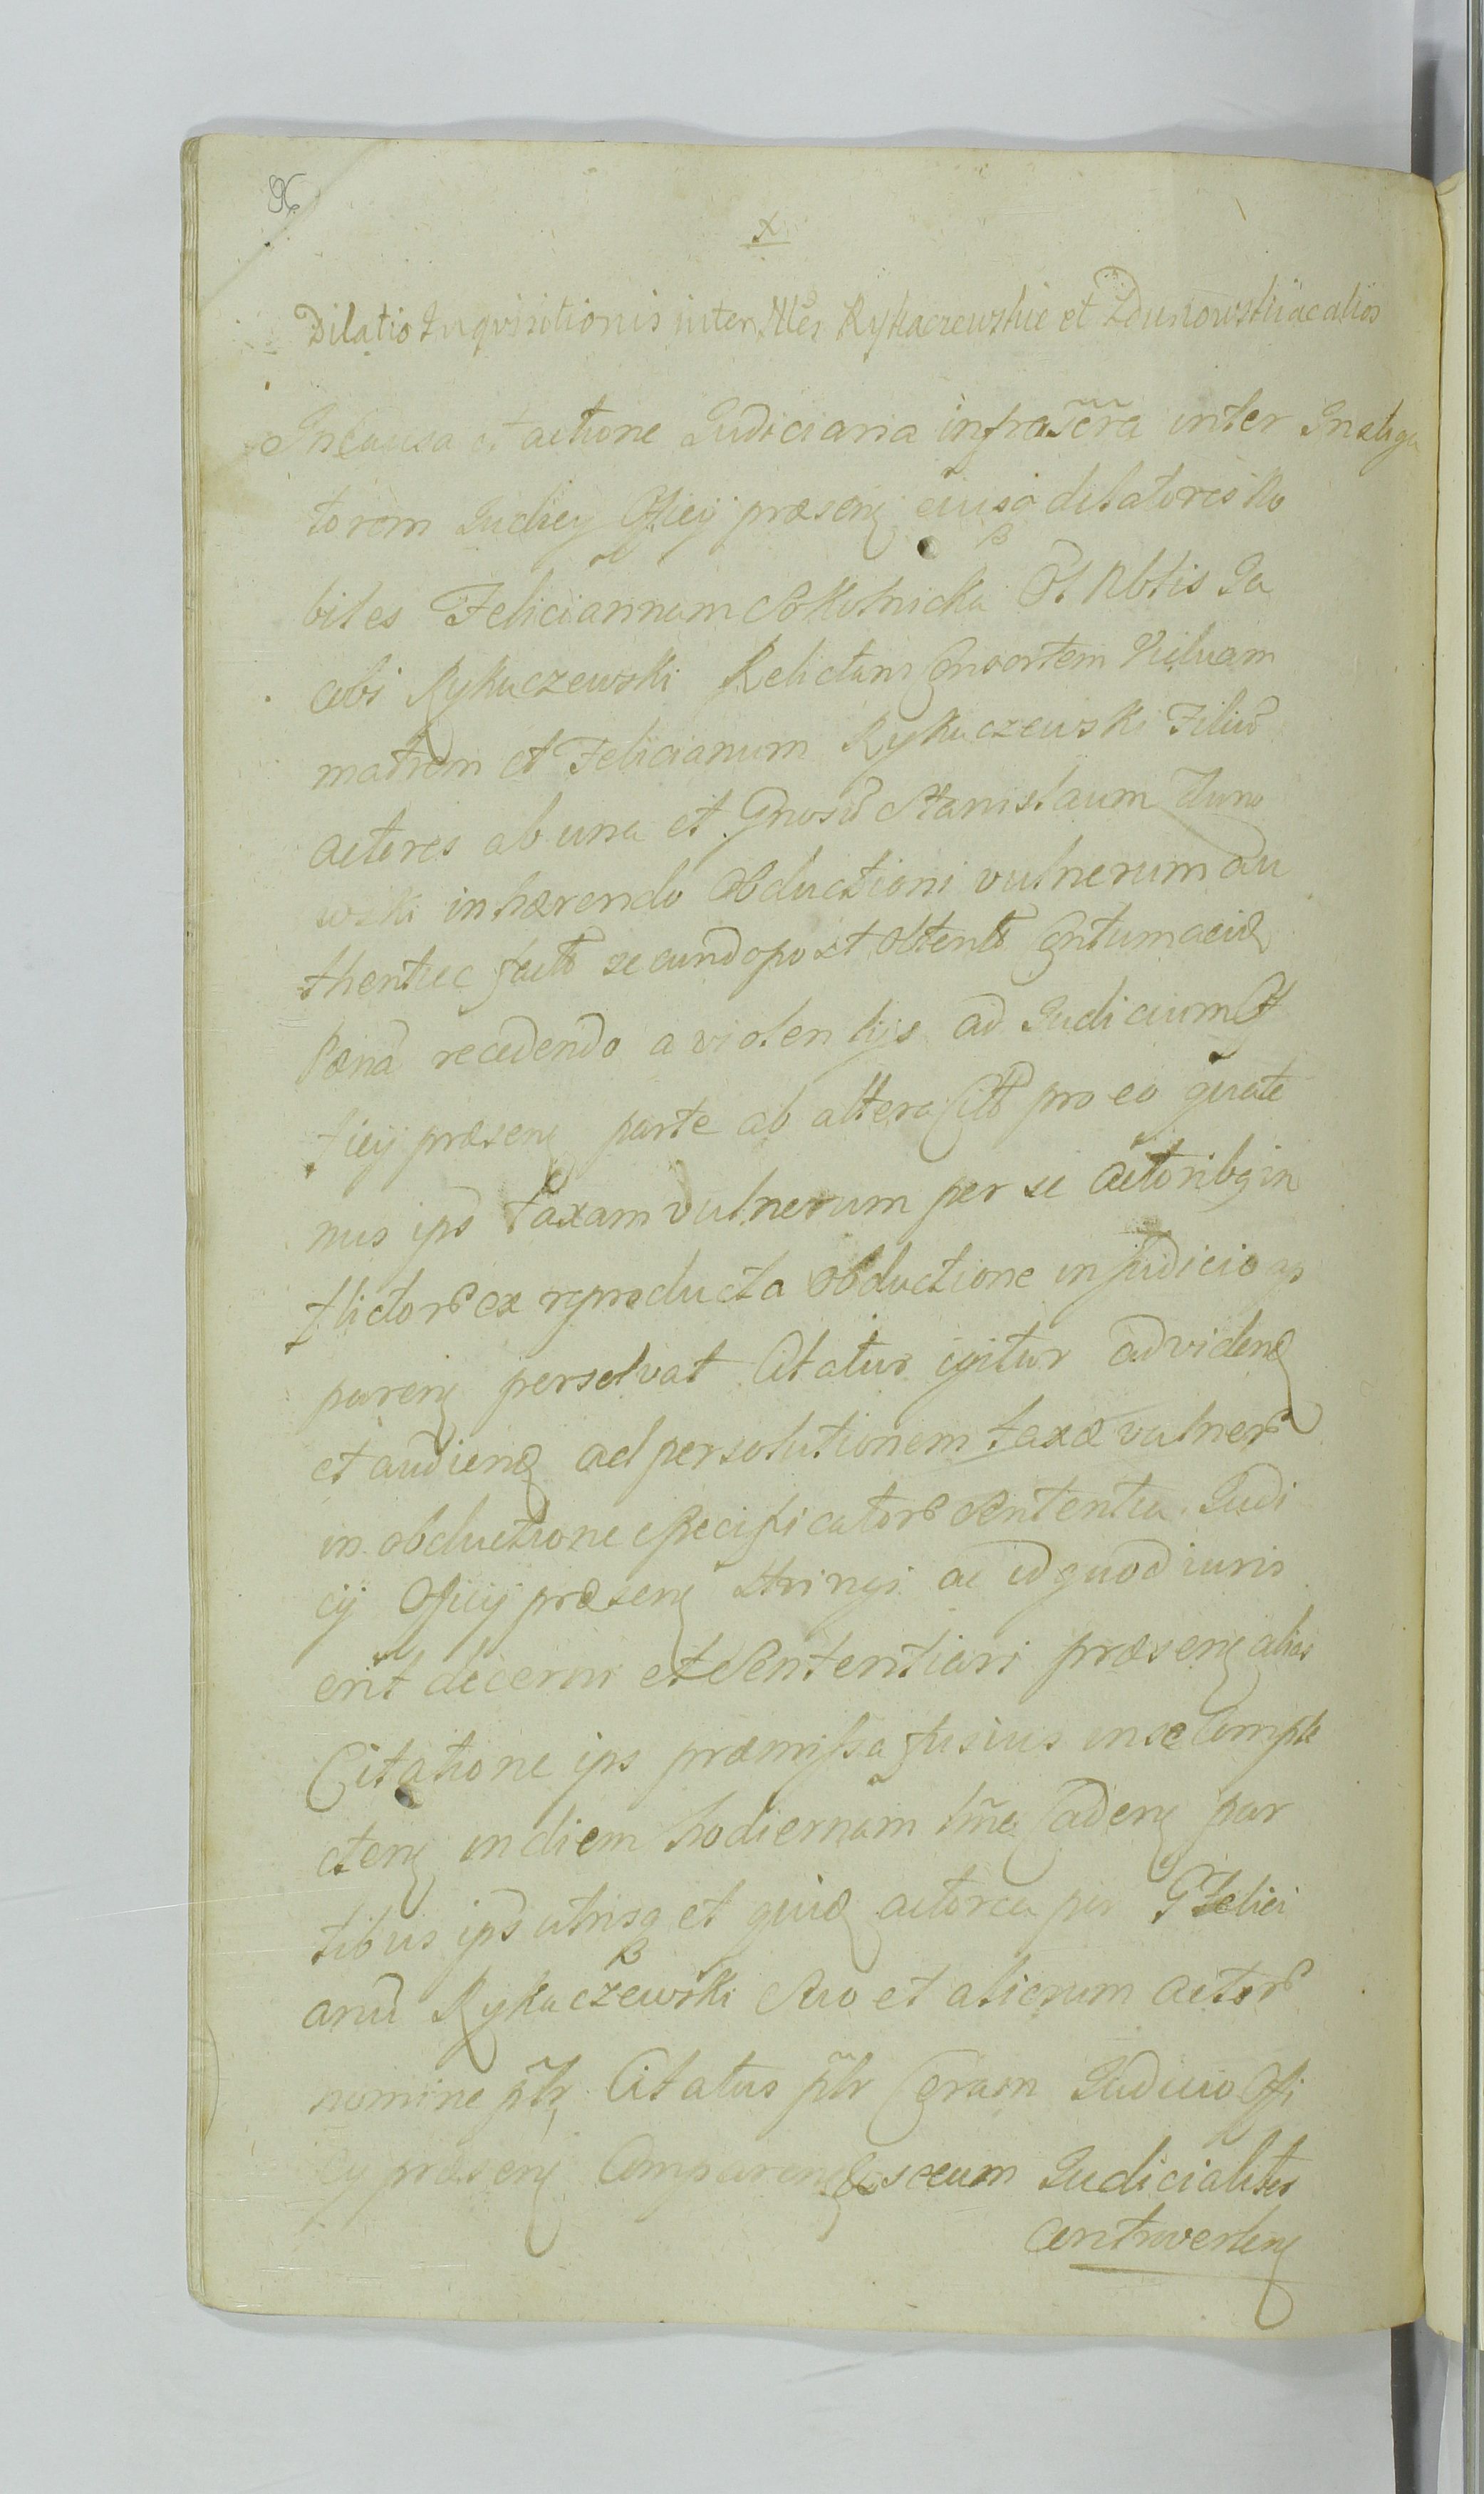 96
x
Dilatio Inqvisitionis inter Nles Rykaczewskie et Zdunowskii ac alios
In Causa et actione Judiciaria infrascra inter Instiga
torem Judicy Officy præsen eiusq delatores No
biles Feliciannam Sokolnicka Ol Nblis Ja
cobi Rykaczewski Relictam Consortem Viduam
matrem et Felicianum Rykaczewski Filiu
actores ab una et Gnosu Stanislaum Duno
wski inhærendo Obductioni vulnerum au
thentice fact secundo post obtent Contumaciæ
Pæna recedendo a violentijs ad Judicium Of
ficij præsen parte ab altera Citt pro eo quate
nus ips taxam vulnerum per se Actoribq in
flictor ex reproducta Obductione in judicio ap
paren persolvat Citatus igitur ad viden
et audien ad persolutionem taxæ vulner
in obductione specificator Sententia Judi
cij Officij præsen stringi ac id quod iuris
erit decerni et Sententiari præsen alias
Citatione ips præmissa fusius in se Comple
cten in diem hodiernam tmē caden par
tibus ips utrisq et quid actorea per G Felici
anu Rykaczewski Suo et aliorum actor
nomine pltr Citatus pltr Coram Judicio Offi
cy præsen Comparen Et secum Judicialiter
Controverten